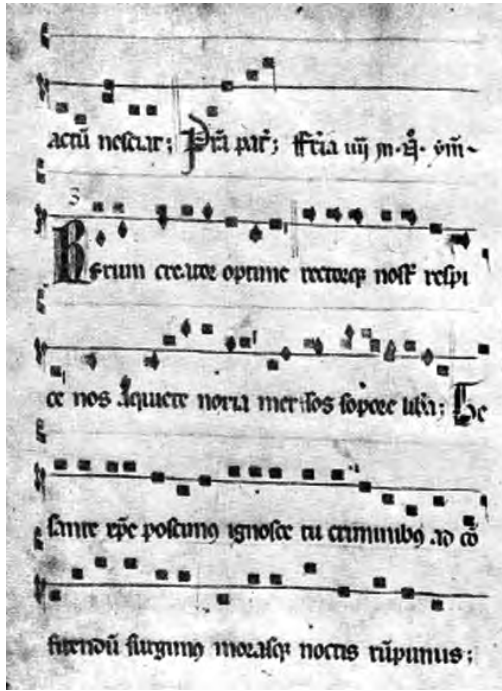 actū nesciat; Prā pat̄; ffr̄ia iiij
Rerum creator optime rectorq nosr̄ respi
ce nos a quiete noxia mersos sopore lib̄a; Te
sancte xp̄e poscimꝰ ignosce tu criminibꝰ ad cō
fitendū surgimꝰ morasq noctis rūpimus;